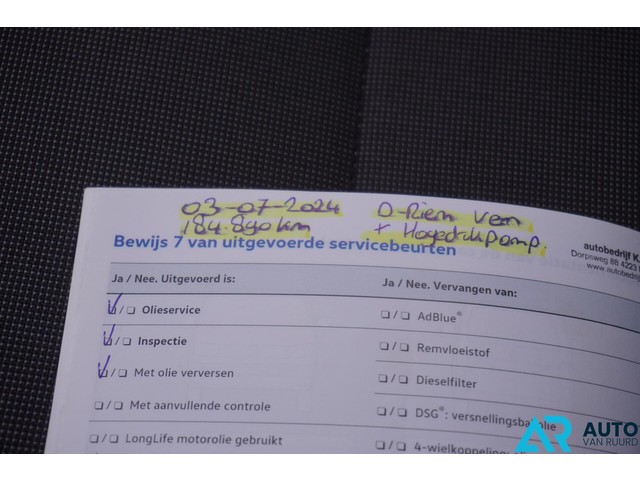 03-07-2024
184.890 km
D-Riem Vern
+ Hogedrukpomp.
Bewijs 7 van uitgevoerde servicebeurten
autobedrijf K.
Dorpsweg 88 4223
www.autobedrij
Ja / Nee. Uitgevoerd is:
Ja / Nee. Vervangen van:
☑ / ☐ Olieservice
☐ / ☐ AdBlue®
☑ / ☐ Inspectie
☐ / ☐ Remvloeistof
☑ / ☐ Met olie verversen
☐ / ☐ Dieselfilter
☐ / ☐ Met aanvullende controle
☐ / ☐ DSG®: versnellingsbakolie
☐ / ☐ LongLife motorolie gebruikt
☐ / ☐ 4-wielkoppeling:
AR AUTO
VAN RUURD